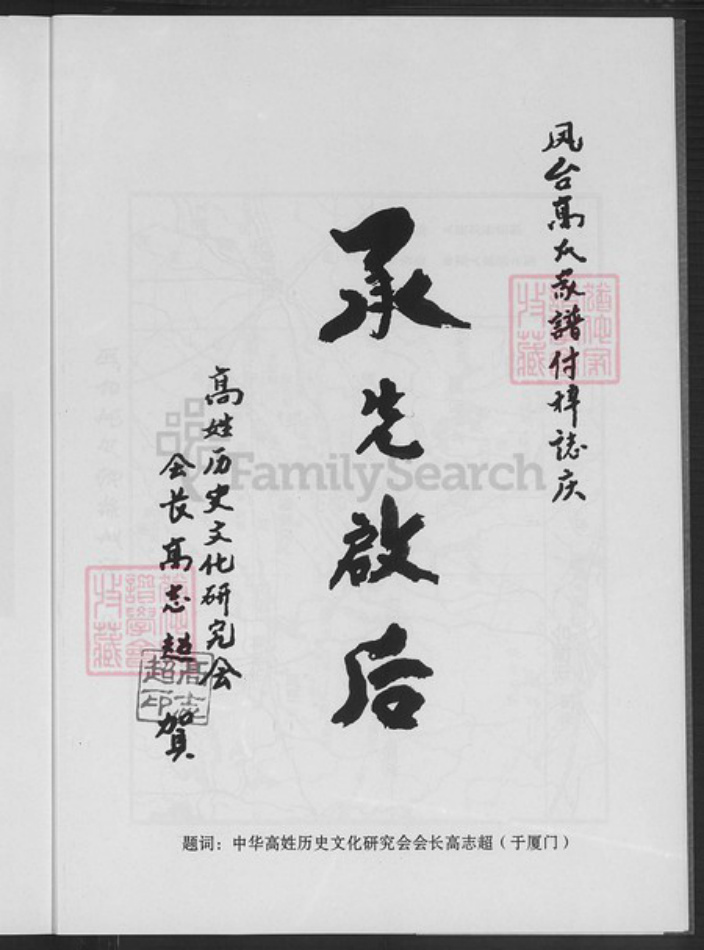 凤台高氏家譜付梓誌庆
承先啟后
高姓历史文化研究会
会长高志超
贺
高志超印
FamilySearch
题词：中华高姓历史文化研究会会长高志超（于厦门）